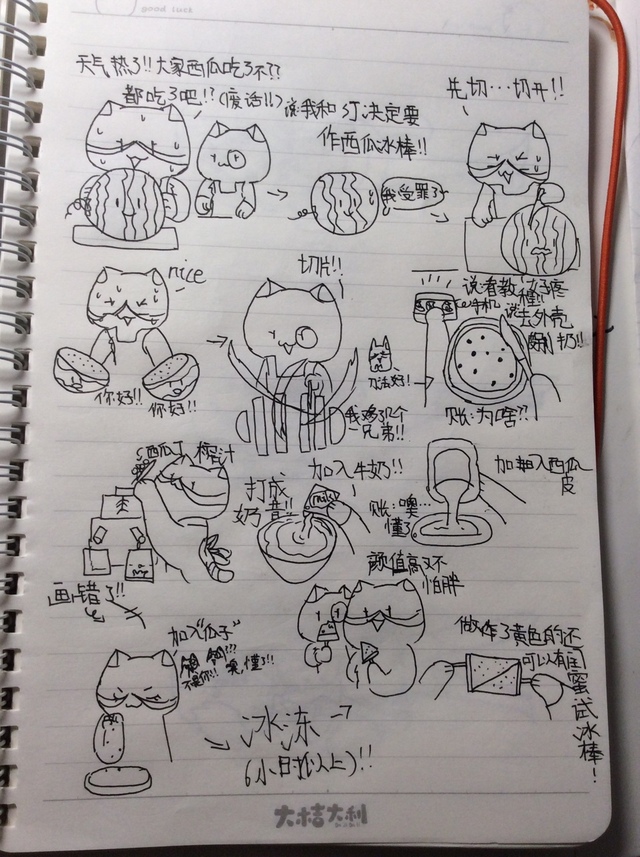 good luck
天气热了!!大家西瓜吃了不??
都吃了吧!!(废话!!)
说我和
决定要
作西瓜冰棒!!
我受罪了~
先切…切开!!
nice
你好!!
你好!!
切片!!
刀法好!
兄弟!!
说看教程!!
手机
说去外壳
账:为啥??
西瓜丁
榨汁
画错了!!
打成
奶昔!!
加入牛奶!!
milk
账:噢…
懂了
加入西瓜
皮
颜值高又不
怕胖
加入"瓜子"
不是你!!
噢,懂了!!
冰冻
(6小时以上)!!
黄色的还
可以有
蜜试冰棒!
大桔大利